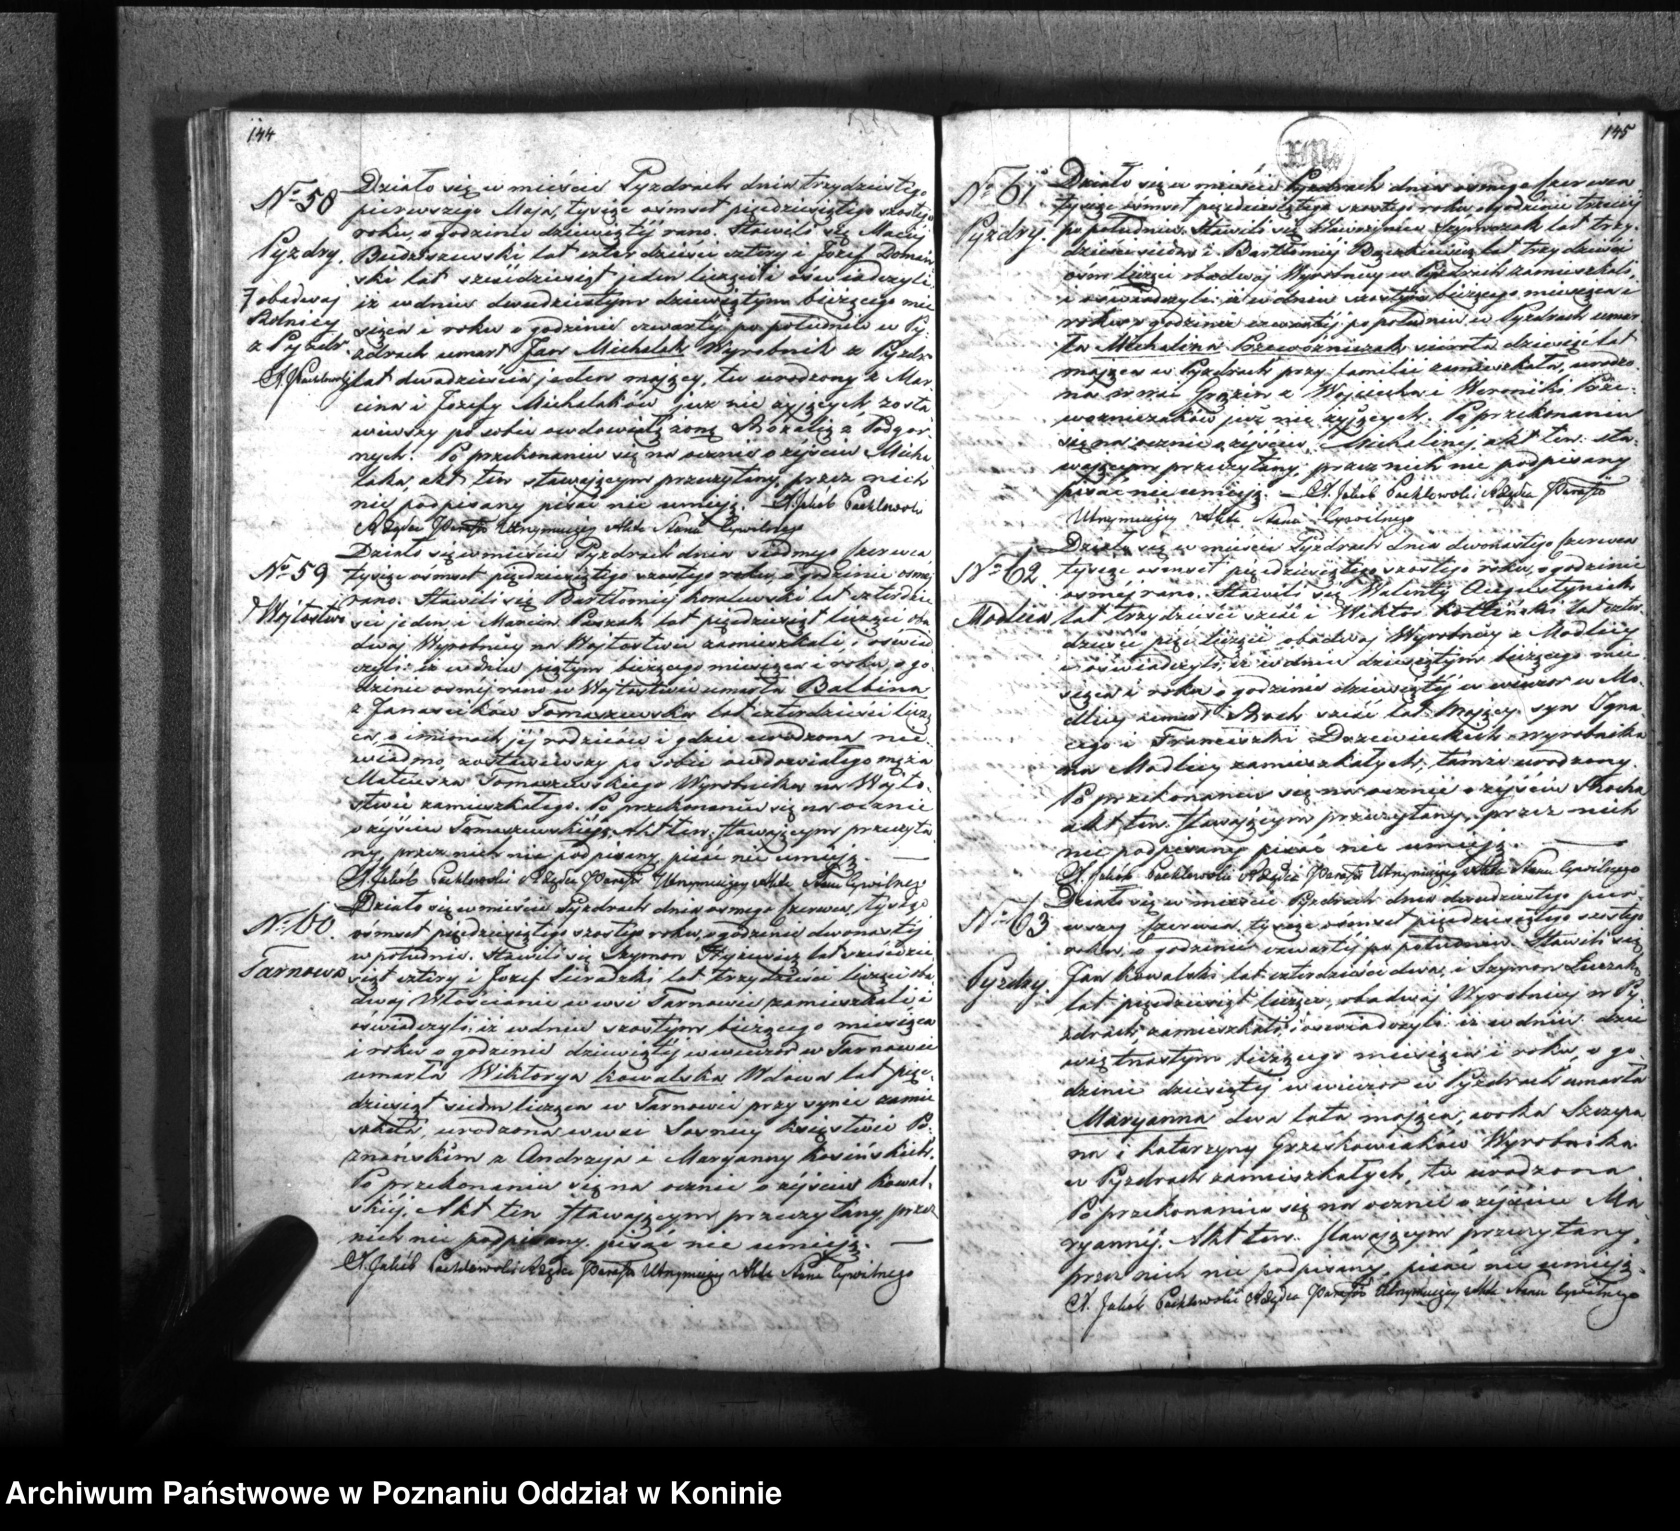 144
№ 58
Pyzdry.
obadwaj
Rolnicy
z Pyzdr.
X. J. Pachlewski
Działo się w mieście Pyzdrach dnia trzydziestego
pierwszego Maja, tysiąc ośmset pięćdziesiątego szóstego
roku, o godzinie dziewiątej rano. Stawili się Maciej
Budziszewski lat czterdzieści cztery i Józef Domań
ski lat sześćdziesiąt jeden liczący i oświadczyli,
iż w dniu dwudziestym dziewiątym bieżącego mie
siąca i roku o godzinie czwartej po południu w Py
zdrach umarł Jan Michalak Wyrobnik z Pyzdr
lat dwadzieścia jeden mający, tu urodzony z Mar
cina i Józefy Michalaków już nie żyjących zosta
wiwszy po sobie owdowiałą żonę Rozalię z Podgór
nych. Po przekonaniu się na ocznie o zejściu Micha
laka, akt ten stawającym przeczytany, przez nich
nie podpisany pisać nie umieją. X. Jakób Pachlewski
Rządca Parafii Utrzymujący Akta Stanu Cywilnego
№ 59
Wójtostwo
Działo się w mieście Pyzdrach dnia siódmego Czerwca
tysiąc ośmset pięćdziesiątego szóstego roku, o godzinie ósmej
rano. Stawili się Bartłomiej Kowalewski lat czterdzie
ści jeden, i Marcin Paszak lat pięćdziesiąt liczący oba
dwaj Wyrobnicy na Wójtostwie zamieszkali, i oświad
czyli: iż w dniu piątym bieżącego miesiąca i roku, o go
dzinie ósmej rano w Wójtostwie umarła Balbina
z Janasików Tomaszewska lat czterdzieści licz
ca, o imionach jej rodziców i gdzie urodzona nie
wiadomo, zostawiwszy po sobie owdowiałego męża
Mateusza Tomaszewskiego Wyrobnika na Wójto
stwie zamieszkałego. Po przekonaniu się na ocznie
o zejściu Tomaszewskiej, Akt ten stawającym przeczyta
ny, przez nich nie podpisany pisać nie umieją.
X. Jakób Pachlewski Rządca Parafii Utrzymujący Akta Stanu Cywilnego
№ 60.
Tarnowa
Działo się w mieście Pyzdrach dnia ósmego Czerwca, tysiąc
ośmset pięćdziesiątego szóstego roku, o godzinie dwunastej
w południe. Stawili się Szymon Hyżewicz lat sześćdzie
siąt cztery i Józef Sieradzki lat trzydzieści liczący oba
dwaj Włościanie w wsi Tarnowie zamieszkali i
oświadczyli: iż w dniu szóstym bieżącego miesiąca
i roku o godzinie dziewiątej w wieczór w Tarnowie
umarła Wiktorya Kowalska Wdowa lat pięć
dziesiąt siedm licząca w Tarnowie przy synie zamie
szkała, urodzona w wsi Sosnicy Księstwie Po
znańskim z Andrzeja i Maryanny Kosińskich.
Po przekonaniu się na ocznie o zejściu Kowal
skiej, Akt ten stawającym przeczytany, przez
nich nie podpisany. pisać nie umieją.
X. Jakób Pachlewski Rządca Parafii Utrzymujący Akta Stanu Cywilnego
145
№ 61
Pyzdry.
Działo się w mieście Pyzdrach dnia ósmego Czerwca
tysiąc ośmset pięćdziesiątego szóstego roku, o godzinie trzeciej
po południu. Stawili się Wawrzyniec Szymczak lat trzy
dzieści siedm i Bartłomiej Baszkiewicz lat trzydzieści
ośm liczący obadwaj Wyrobnicy w Pyzdrach zamieszkali,
i oświadczyli: iż w dniu szóstym bieżącego miesiąca i
roku o godzinie czwartej po południu w Pyzdrach umar
ła Michalina Przewoźniczak sierota dziewięć lat
mająca w Pyzdrach przy familii zamieszkała, urodzo
na w wsi z Wojciecha i Weroniki Prze
woźniczaków już nie żyjących. Po przekonaniu
się na ocznie o zejściu Michaliny, akt ten sta
wającym przeczytany, przez nich nie podpisany
pisać nie umieją. X. Jakób Pachlewski Rządca Parafii
Utrzymujący Akta Stanu Cywilnego
№ 62.
Modlica
Działo się w mieście Pyzdrach dnia dwunastego Czerwca
tysiąc ośmset pięćdziesiątego szóstego roku, o godzinie
ósmej rano. Stawili się Walenty Augustyniak
lat trzydzieści sześć i Wiktor Kotliński lat czter
dzieści pięć liczący, obadwaj Wyrobnicy z Modlicy
i oświadczyli, iż w dniu dziesiątym bieżącego mie
siąca i roku o godzinie dziewiątej w wieczór w Mo
dlicy umarł Roch sześć lat mający syn Igna
cego i Franciszki Drzewieckich wyrobnika
na Modlicy zamieszkałych, tamże urodzony.
Po przekonaniu się na ocznie o zejściu Rocha
akt ten stawającym przeczytany, przez nich
nie podpisany pisać nie umieją.
X. Jakób Pachlewski Rządca Parafii Utrzymujący Akta Stanu Cywilnego
№ 63
Pyzdry.
Działo się w mieście Pyzdrach dnia dwudziestego pier
wszy Czerwca, tysiąc ośmset pięćdziesiątego szóstego
roku, o godzinie czwartej po południu. Stawili się
Jan Kowalski lat czterdzieści dwa, i Szymon Łuczak
lat pięćdziesiąt liczący, obadwaj Wyrobnicy w Py
zdrach zamieszkali, i oświadczyli: iż w dniu dzie
więtnastym bieżącego miesiąca i roku, o go
dzinie dziesiątej w wieczór w Pyzdrach umarła
Maryanna dwa lata mająca, córka Szczepa
na i Katarzyny Grześkowiaków Wyrobnika
w Pyzdrach zamieszkałych, tu urodzona
Po przekonaniu się na ocznie o zejściu Ma
ryanny. Akt ten stawającym przeczytany,
przez nich nie podpisany, pisać nie umieją.
X. Jakób Pachlewski Rządca Parafii Utrzymujący Akta Stanu Cywilnego
Archiwum Państwowe w Poznaniu Oddział w Koninie